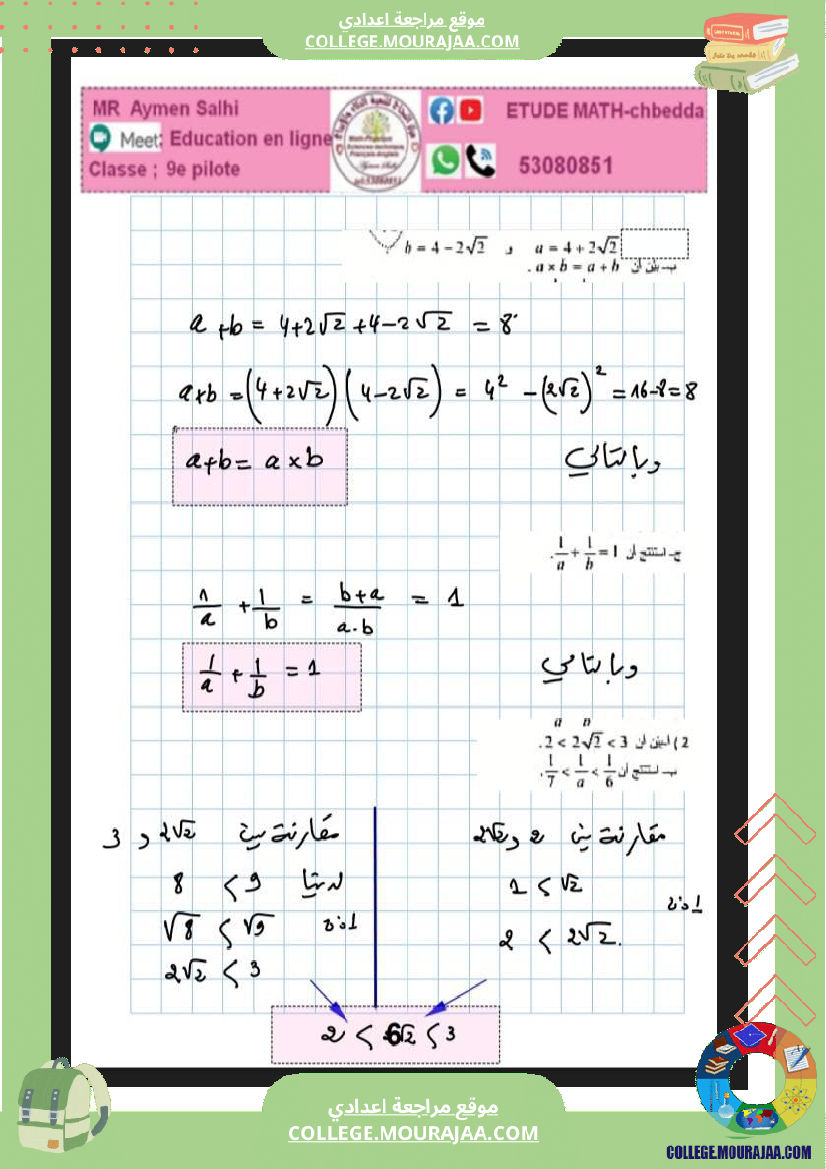 موقع مراجعة اعدادي
COLLEGE.MOURAJAA.COM
MR Aymen Salhi
Meet: Education en ligne
Classe ; 9e pilote
ETUDE MATH-chbedda
53080851
a = 4 + 2√2 و b = 4 − 2√2
ب- بيّن أن a × b = a + b .
a + b = 4+2√2 + 4−2√2 = 8
a×b = (4+2√2)(4−2√2) = 4² − (2√2)² = 16−8 = 8
وبالتالي a+b = a×b
ج- استنتج أن 1/a + 1/b = 1 .
1/a + 1/b = b+a/a.b = 1
وبالتالي 1/a + 1/b = 1
2) أ- بيّن أن 2 < 2√2 < 3 .
ب- استنتج أن 1/7 < 1/a < 1/6 .
مقارنة بين 2 و 2√2
1 < √2
اذن
2 < 2√2.
مقارنة بين 2√2 و 3
لدينا 8 < 9
اذن √8 < √9
2√2 < 3
2 < √2 < 3
موقع مراجعة اعدادي
COLLEGE.MOURAJAA.COM
COLLEGE.MOURAJAA.COM